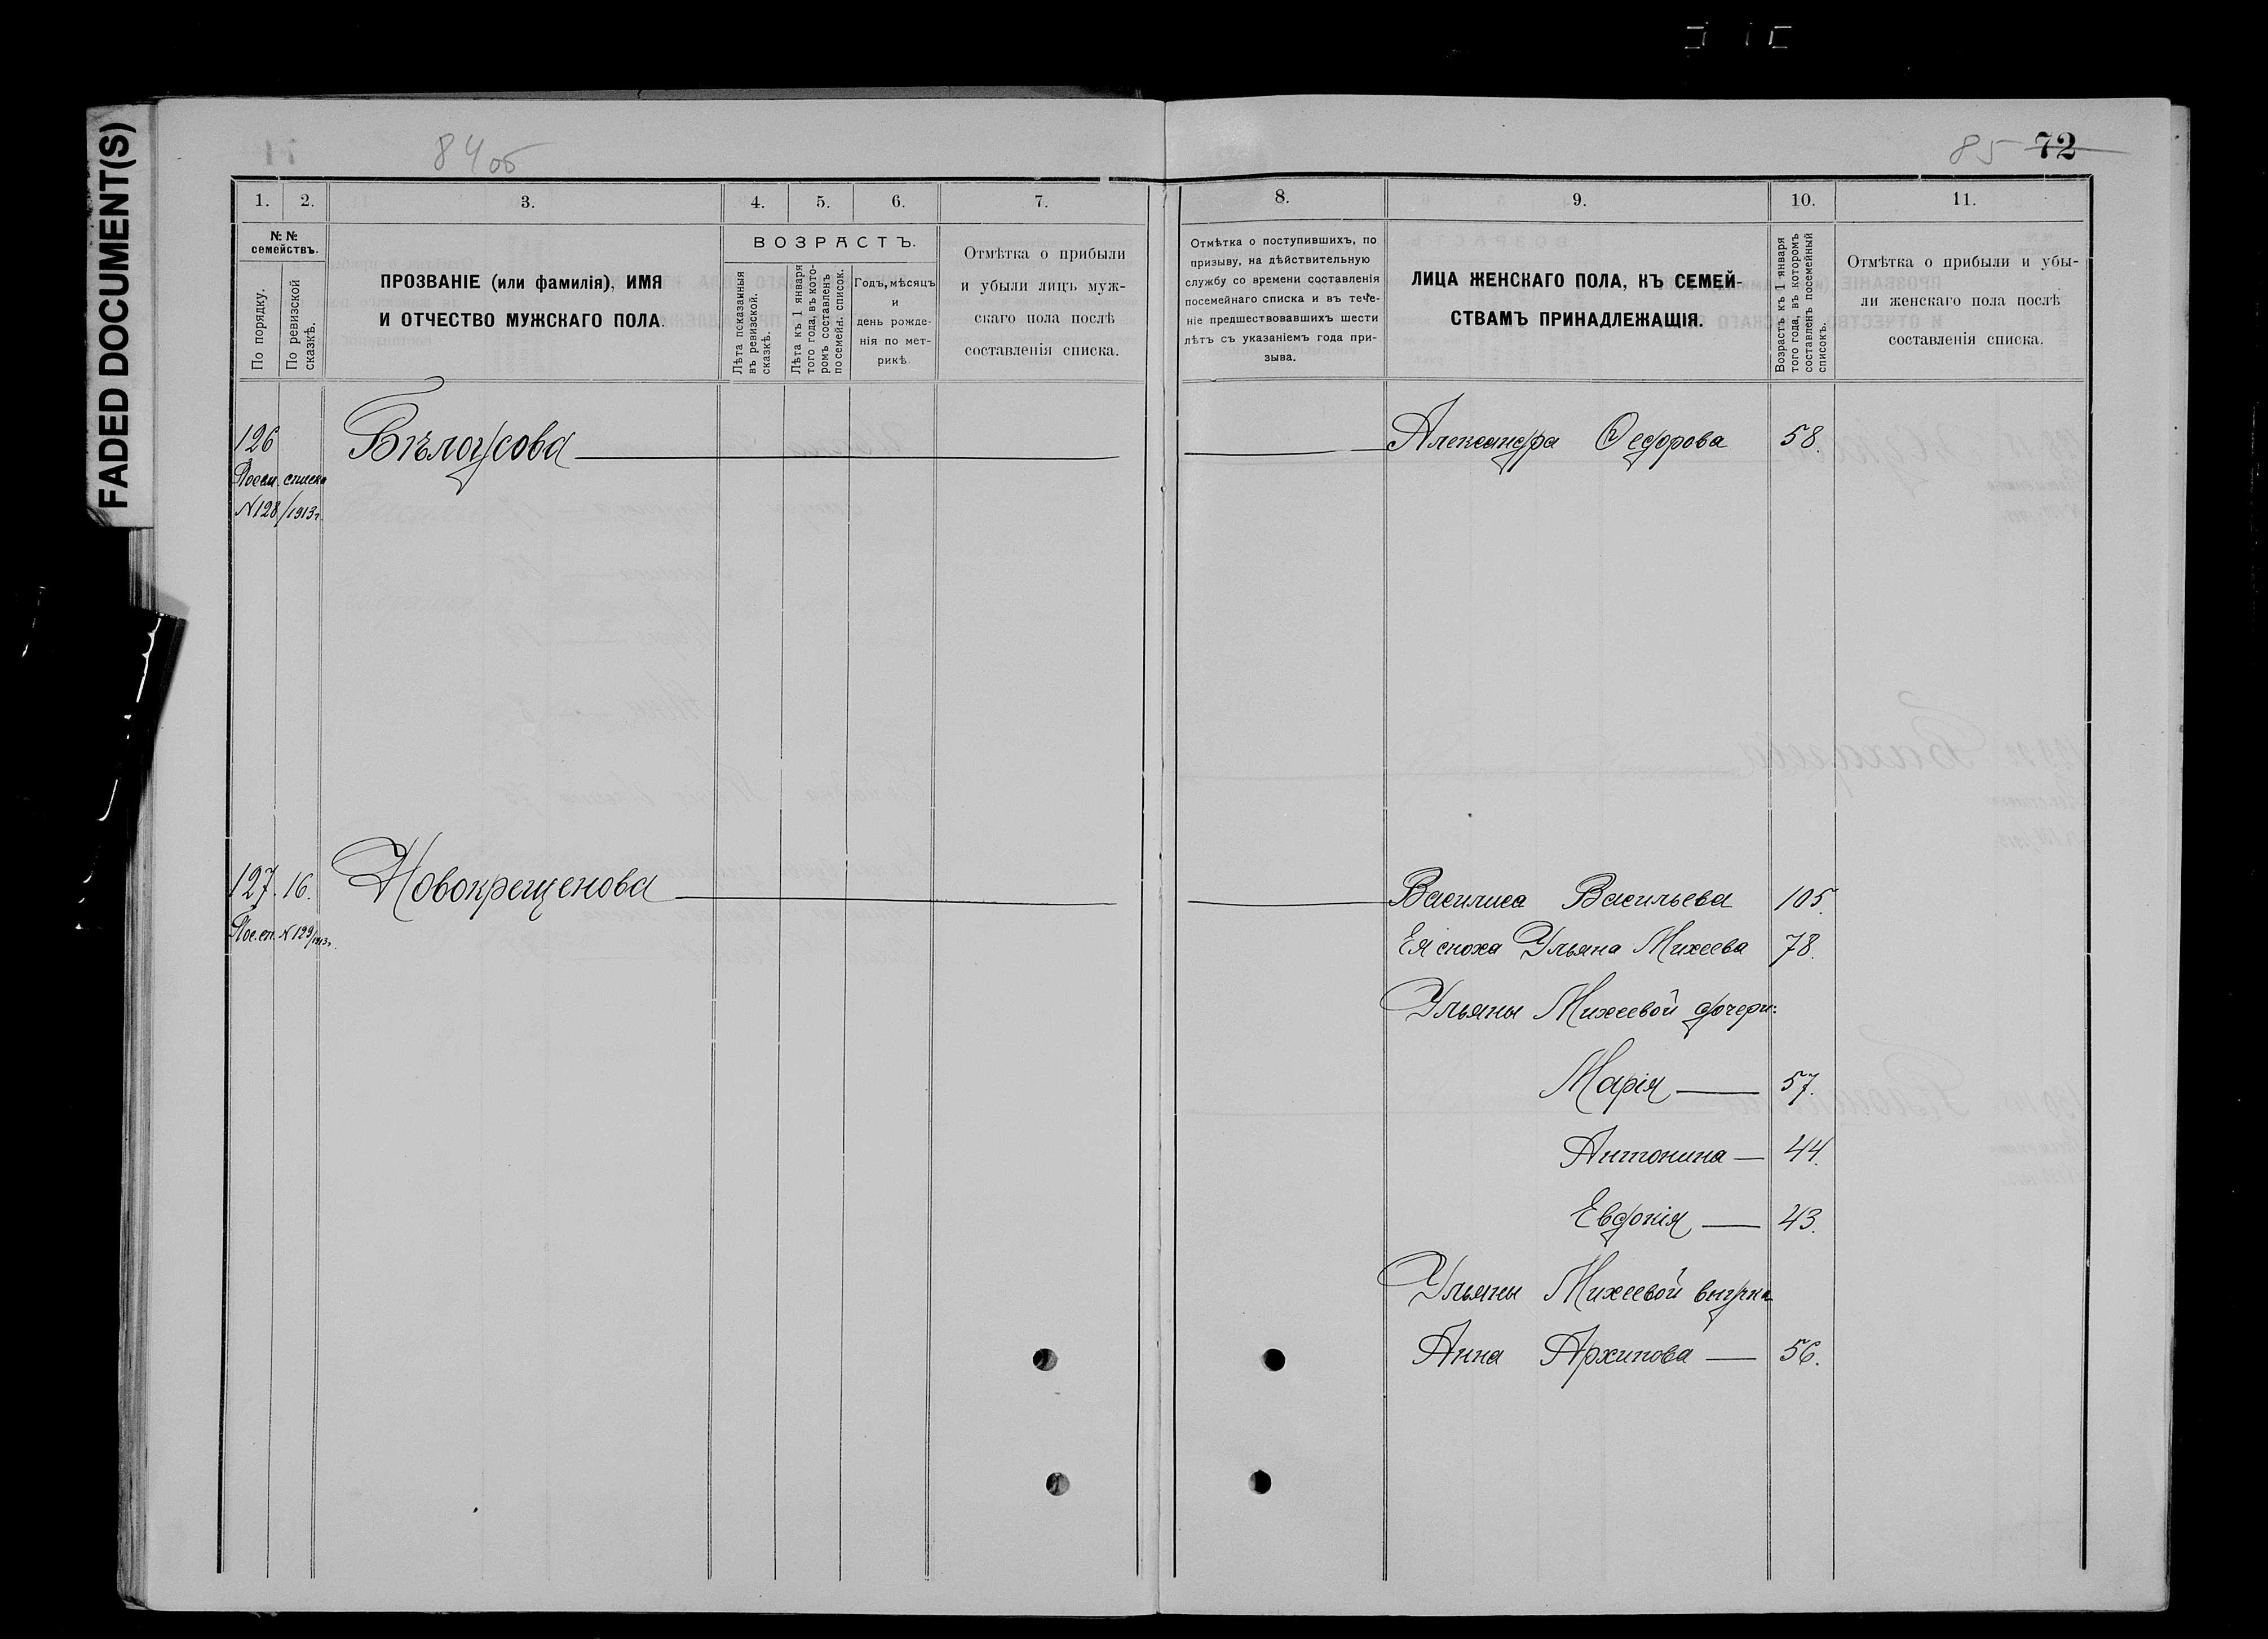 FADED DOCUMENT(S)
84об
85 72
1. 2. 3. 4. 5. 6. 7.
8. 9. 10. 11.
№ №
семействъ.
По порядку.
По ревизской
сказкѣ.
ПРОЗВАНІЕ (или фамилія), ИМЯ
И ОТЧЕСТВО МУЖСКАГО ПОЛА.
ВОЗРАСТЪ.
Лѣта показанныя
въ ревизской.
сказкѣ.
Лѣта къ 1 января
того года, въ кото-
ромъ составленъ
посемейн. список.
Годъ, мѣсяцъ
и
день рожде-
нія по мет-
рикѣ.
Отмѣтка о прибыли
и убыли лицъ муж-
скаго пола послѣ
составленія списка.
Отмѣтка о поступившихъ, по
призыву, на дѣйствительную
службу со времени составленія
посемейнаго списка и въ тече-
ніе предшествовавшихъ шести
лѣтъ съ указаніемъ года при-
зыва.
ЛИЦА ЖЕНСКАГО ПОЛА, КЪ СЕМЕЙ-
СТВАМЪ ПРИНАДЛЕЖАЩІЯ.
Возрастъ къ 1 января
того года, въ которомъ
составленъ посемейный
списокъ.
Отмѣтка о прибыли и убы-
ли женскаго пола послѣ
составленія списка.
126 Бѣлоусова Александра Федорова 58.
Посем. списка
№128/1913г.
127. 16. Новокрещенова Василиса Васильева 105.
Пос. сп. №129/1913г.
Ея сноха Ульяна Михеева 78.
Ульяны Михеевой дочери:
Марія 57.
Антонина 44.
Евдокія 43.
Ульяны Михеевой внучка
Анна Архипова 56.